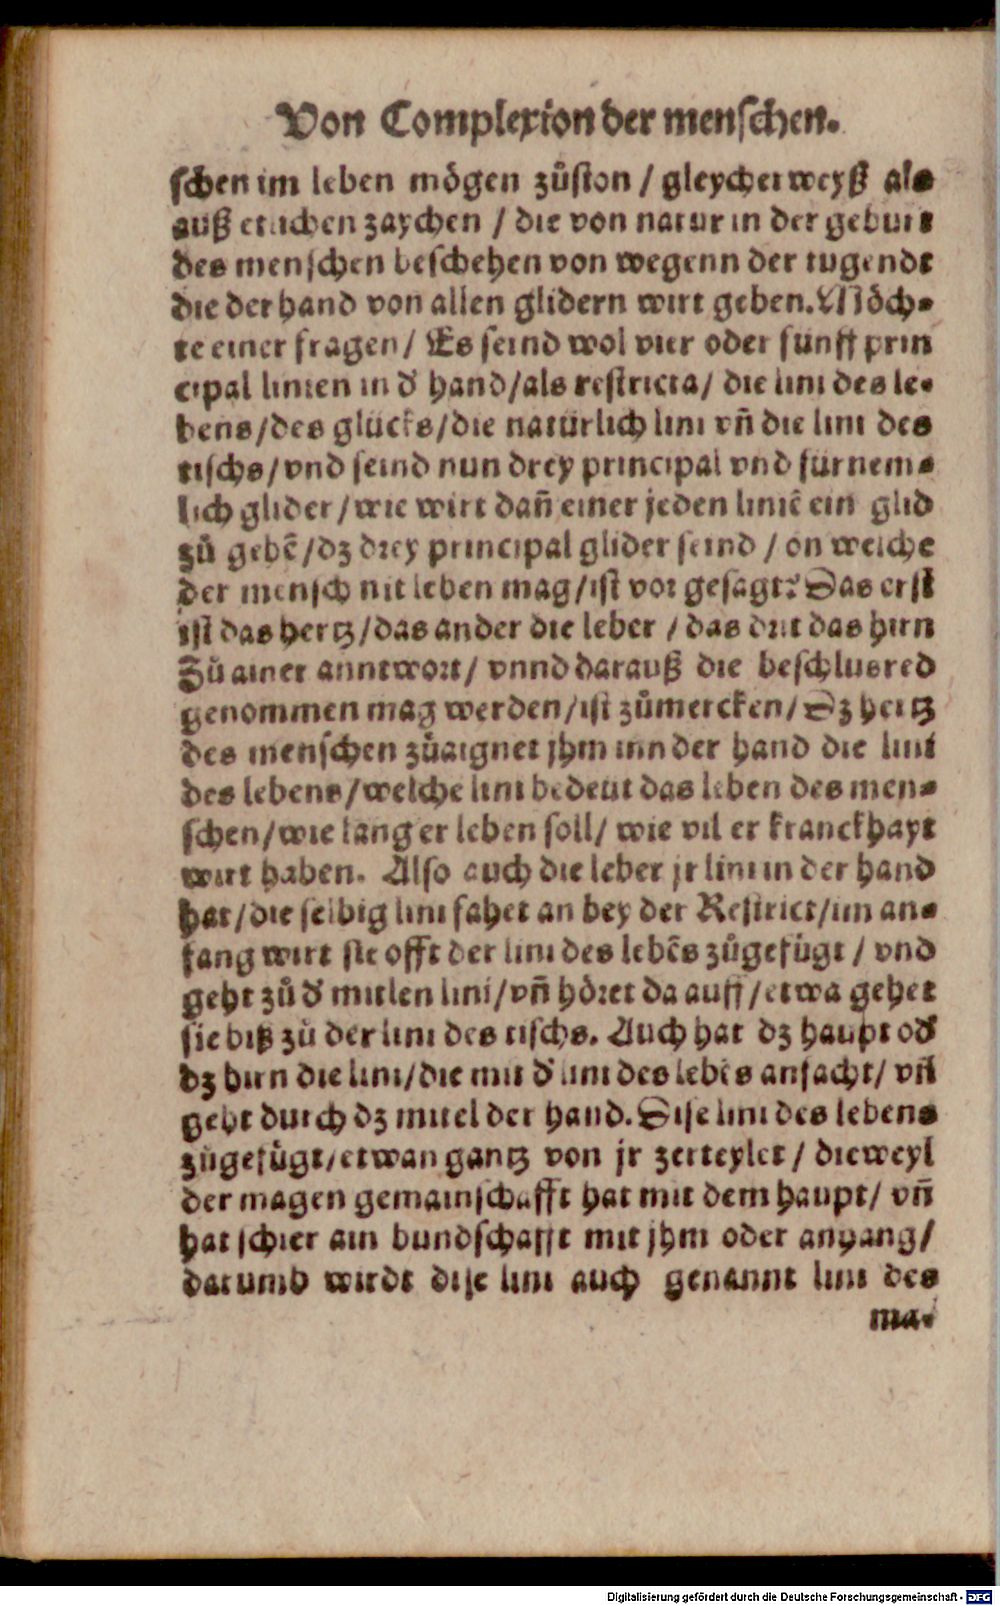 Von Complexion der menschen.
schen im leben mögen zůston / gleycher weyß als
auß etlichen zaychen / die von natur in der geburt
des menschen beschehen von wegenn der tugendt
die der hand von allen glidern wirt geben. Möch-
te einer fragen / Es seind wol vier oder fünff prin
cipal linien in d' hand/als restricta/ die lini des le-
bens/des glücks/die natürlich lini vñ die lini des
tischs/vnd seind nun drey principal vnd fürnem-
lich glider/wie wirt dañ einer jeden liniē ein glid
zů gebē/dz drey principal glider seind / on welche
der mensch nit leben mag/ist vor gesagt? Das erst
ist das hertz/das ander die leber / das drit das hirn
Zů ainer anntwort/ vnnd darauß die beschlusred
genommen mag werden/ist zůmercken/ Dz hertz
des menschen zůaignet jhm inn der hand die lini
des lebens/welche lini bedeut das leben des men-
schen/wie lang er leben soll/ wie vil er kranckhayt
wirt haben. Also auch die leber jr lini in der hand
hat/die selbig lini fahet an bey der Restrict/im an-
fang wirt sie offt der lini des lebēs zůgefügt / vnd
geht zů d' mitlen lini/vñ höret da auff/etwa gehet
sie biß zů der lini des tischs. Auch hat dz haupt od'
dz hirn die lini/die mit d' lini des lebēs anfacht/ vñ
geht durch dz mitel der hand. Dise lini des lebens
zůgefügt/etwan gantz von jr zerteylet / dieweyl
der magen gemainschafft hat mit dem haupt/ vñ
hat schier ain bundschafft mit jhm oder anhang/
darumb wirdt dise lini auch genannt lini des
ma-
Digitalisierung gefördert durch die Deutsche Forschungsgemeinschaft - DFG